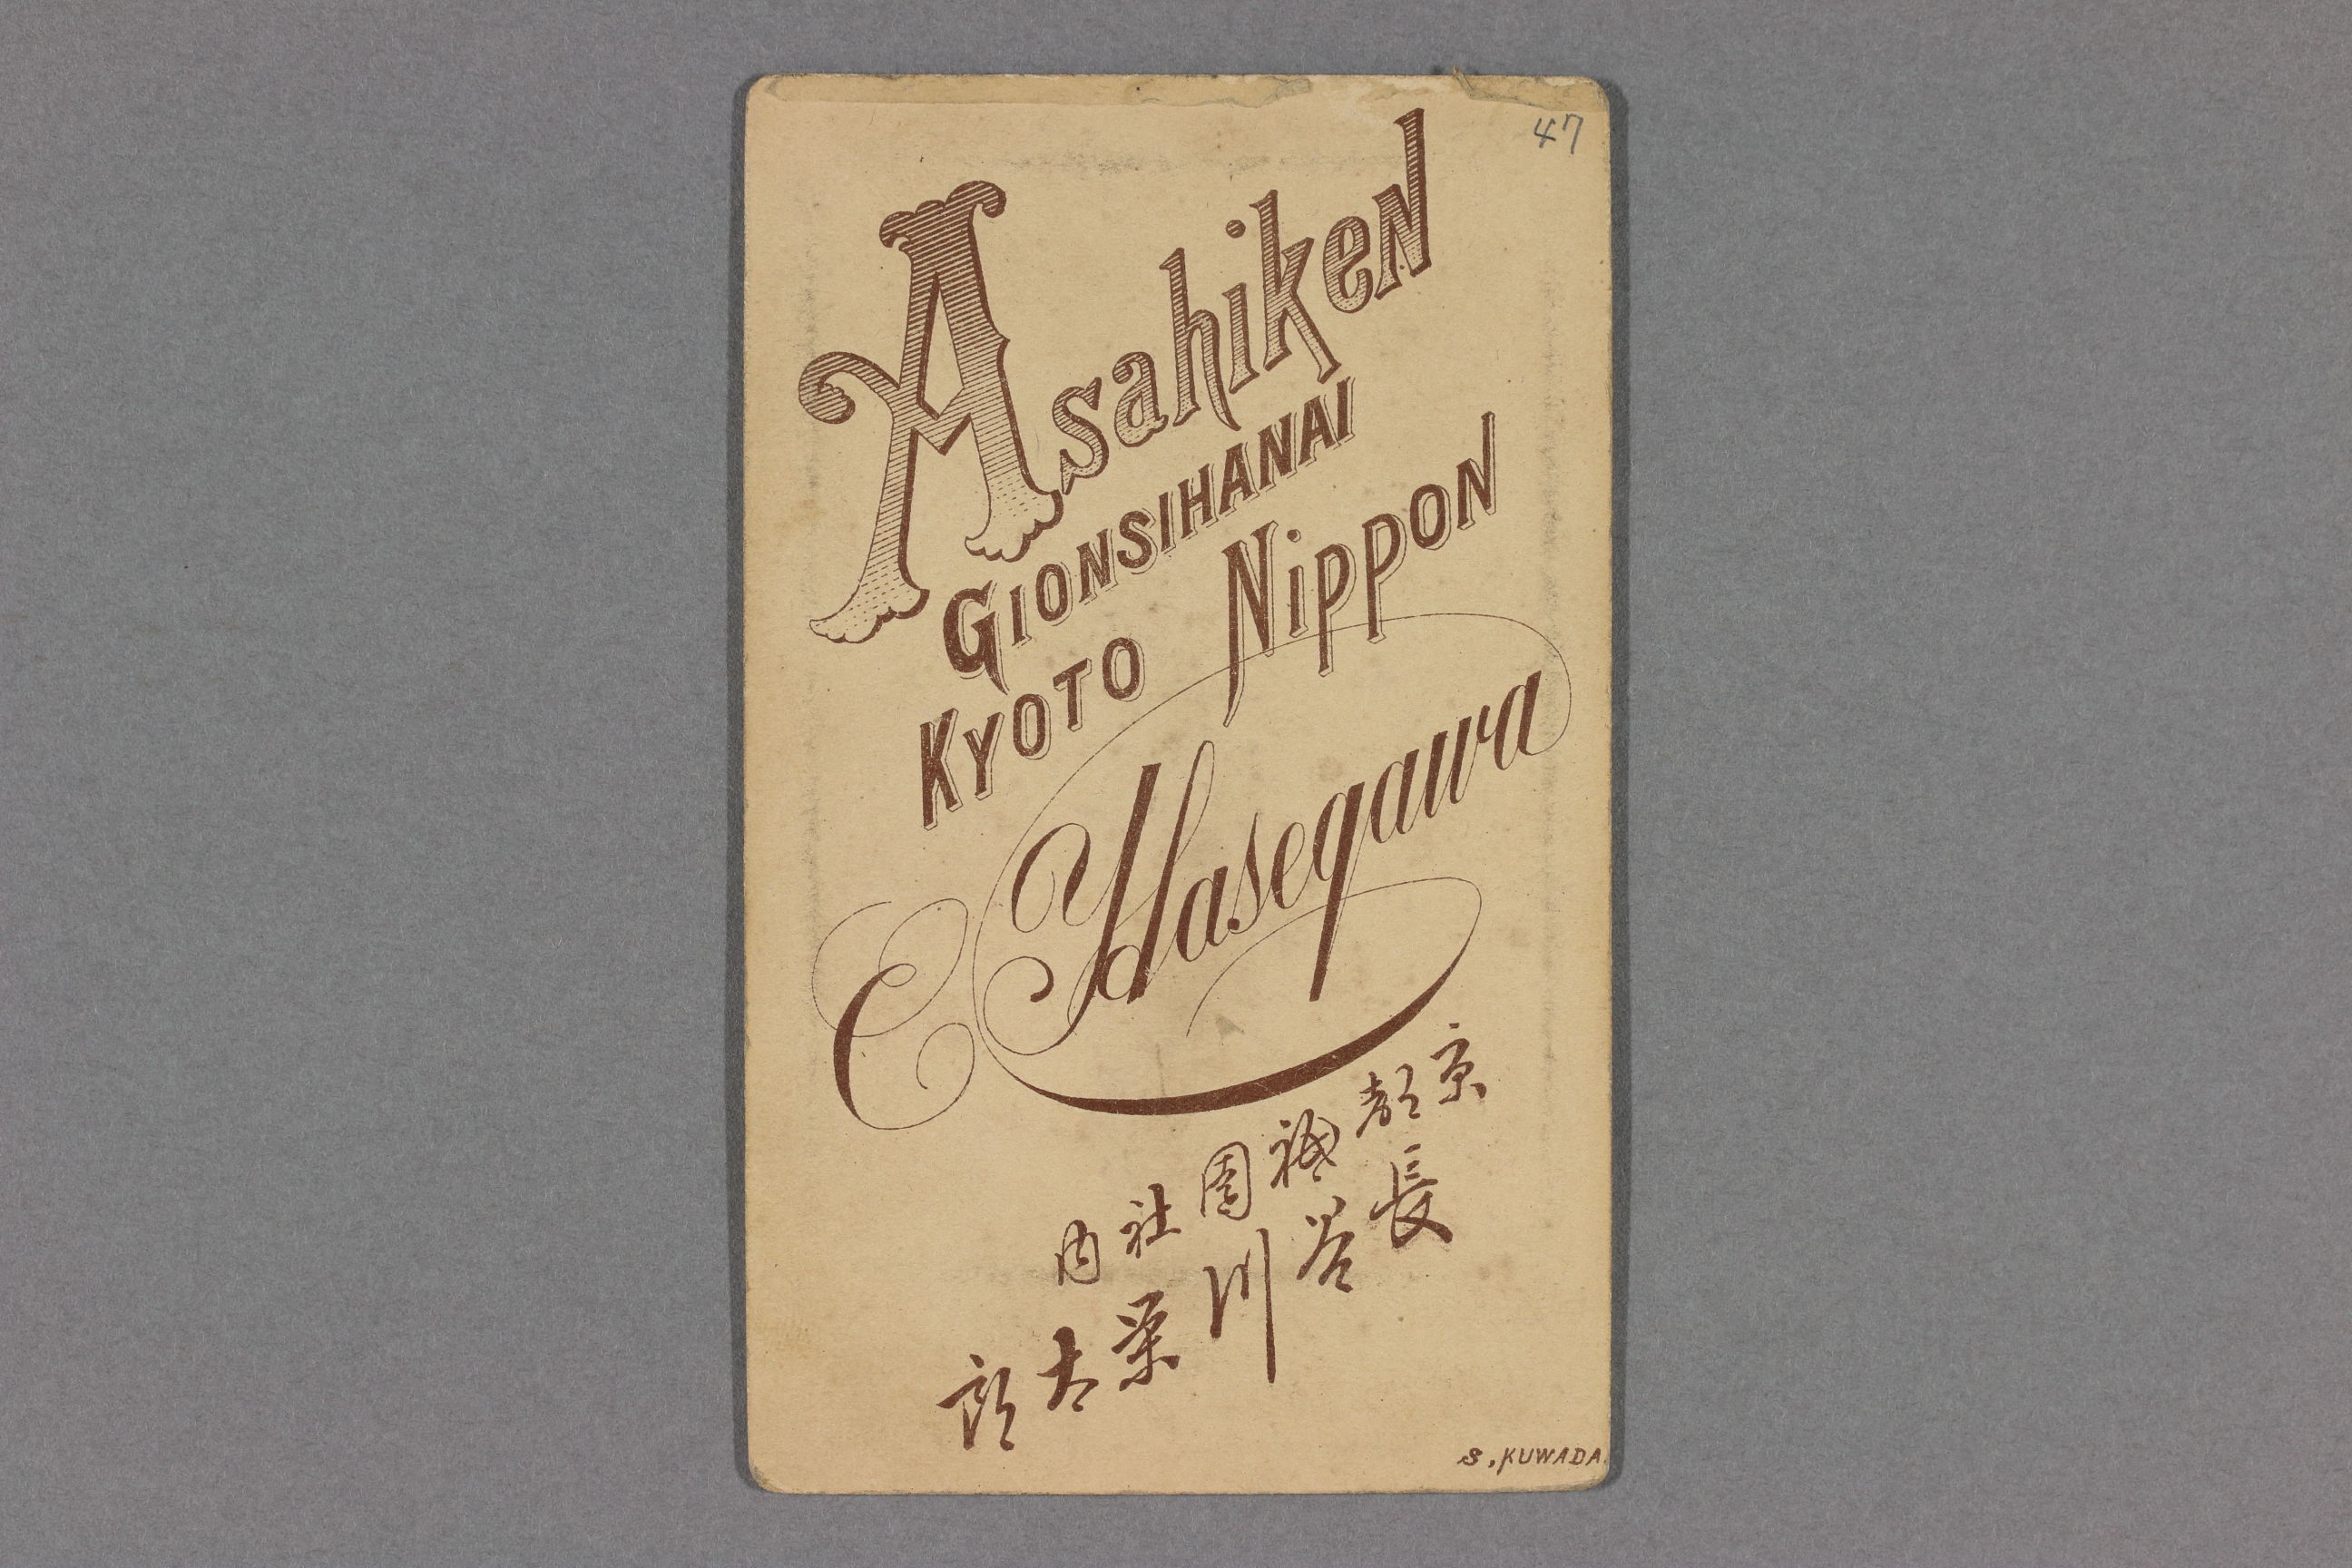 47
Asahiken
GIONSIHANAI
KYOTO NIPPON
E Hasegawa
京都祇園社内
長谷川榮太郎
S. KUWADA.